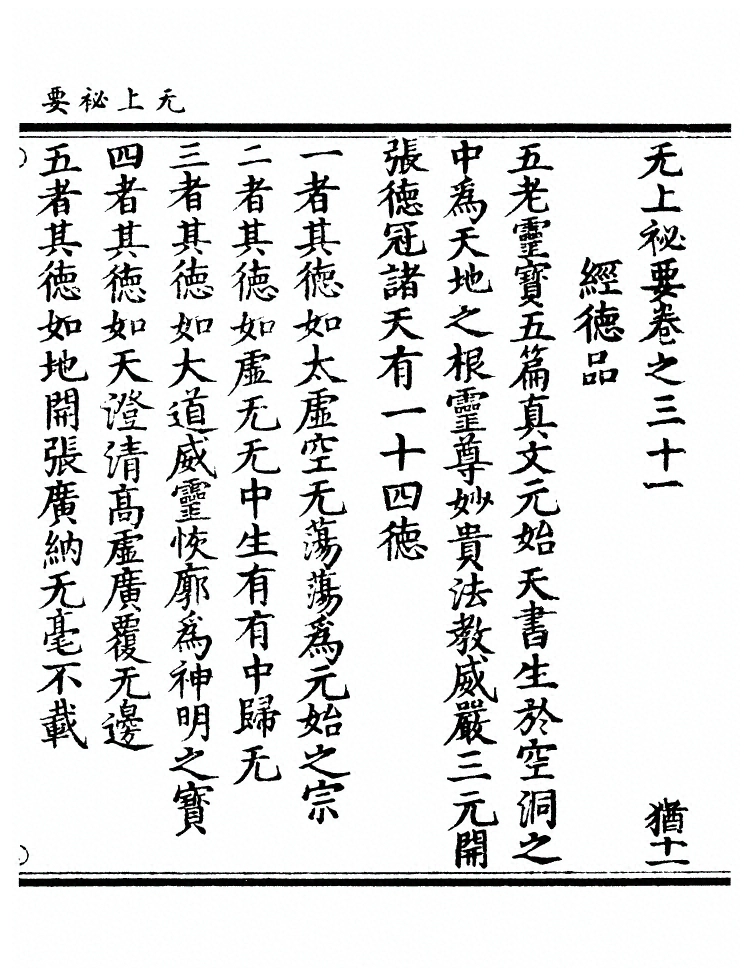 无上祕要
无上祕要卷之三十一
猶十一
經德品
五老靈寶五篇真文元始天書生於空洞之
中爲天地之根靈尊妙貴法教威嚴三元開
張德冠諸天有一十四德
一者其德如太虛空无蕩蕩爲元始之宗
二者其德如虛无无中生有有中歸无
三者其德如大道威靈恢廓爲神明之寶
四者其德如天澄清高虛廣覆无邊
五者其德如地開張廣納无毫不載